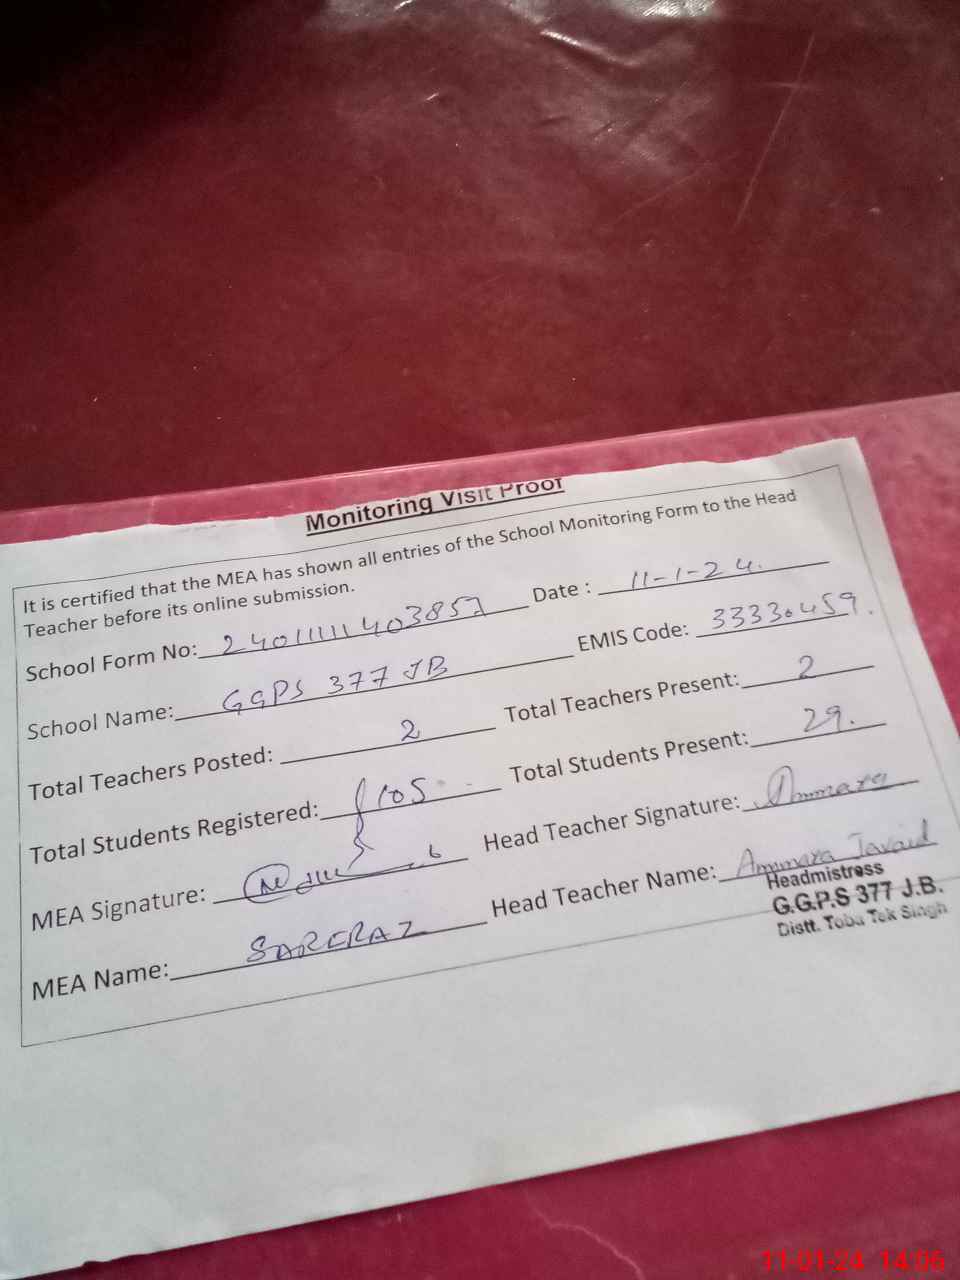 Monitoring Visit Proof
It is certified that the MEA has shown all entries of the School Monitoring Form to the Head
Teacher before its online submission.
School Form No: 2401111140385 Date : 11-1-24.
School Name: GGPS 377 JB EMIS Code: 33330459.
Total Teachers Posted: 2 Total Teachers Present: 2
Total Students Registered: 105 Total Students Present: 29.
MEA Signature: Head Teacher Signature: Ammara
MEA Name: SARFRAZ Head Teacher Name: Ammara Javaid
Headmistress
G.G.P.S 377 J.B.
Distt. Toba Tek Singh
11-01-24 14:06